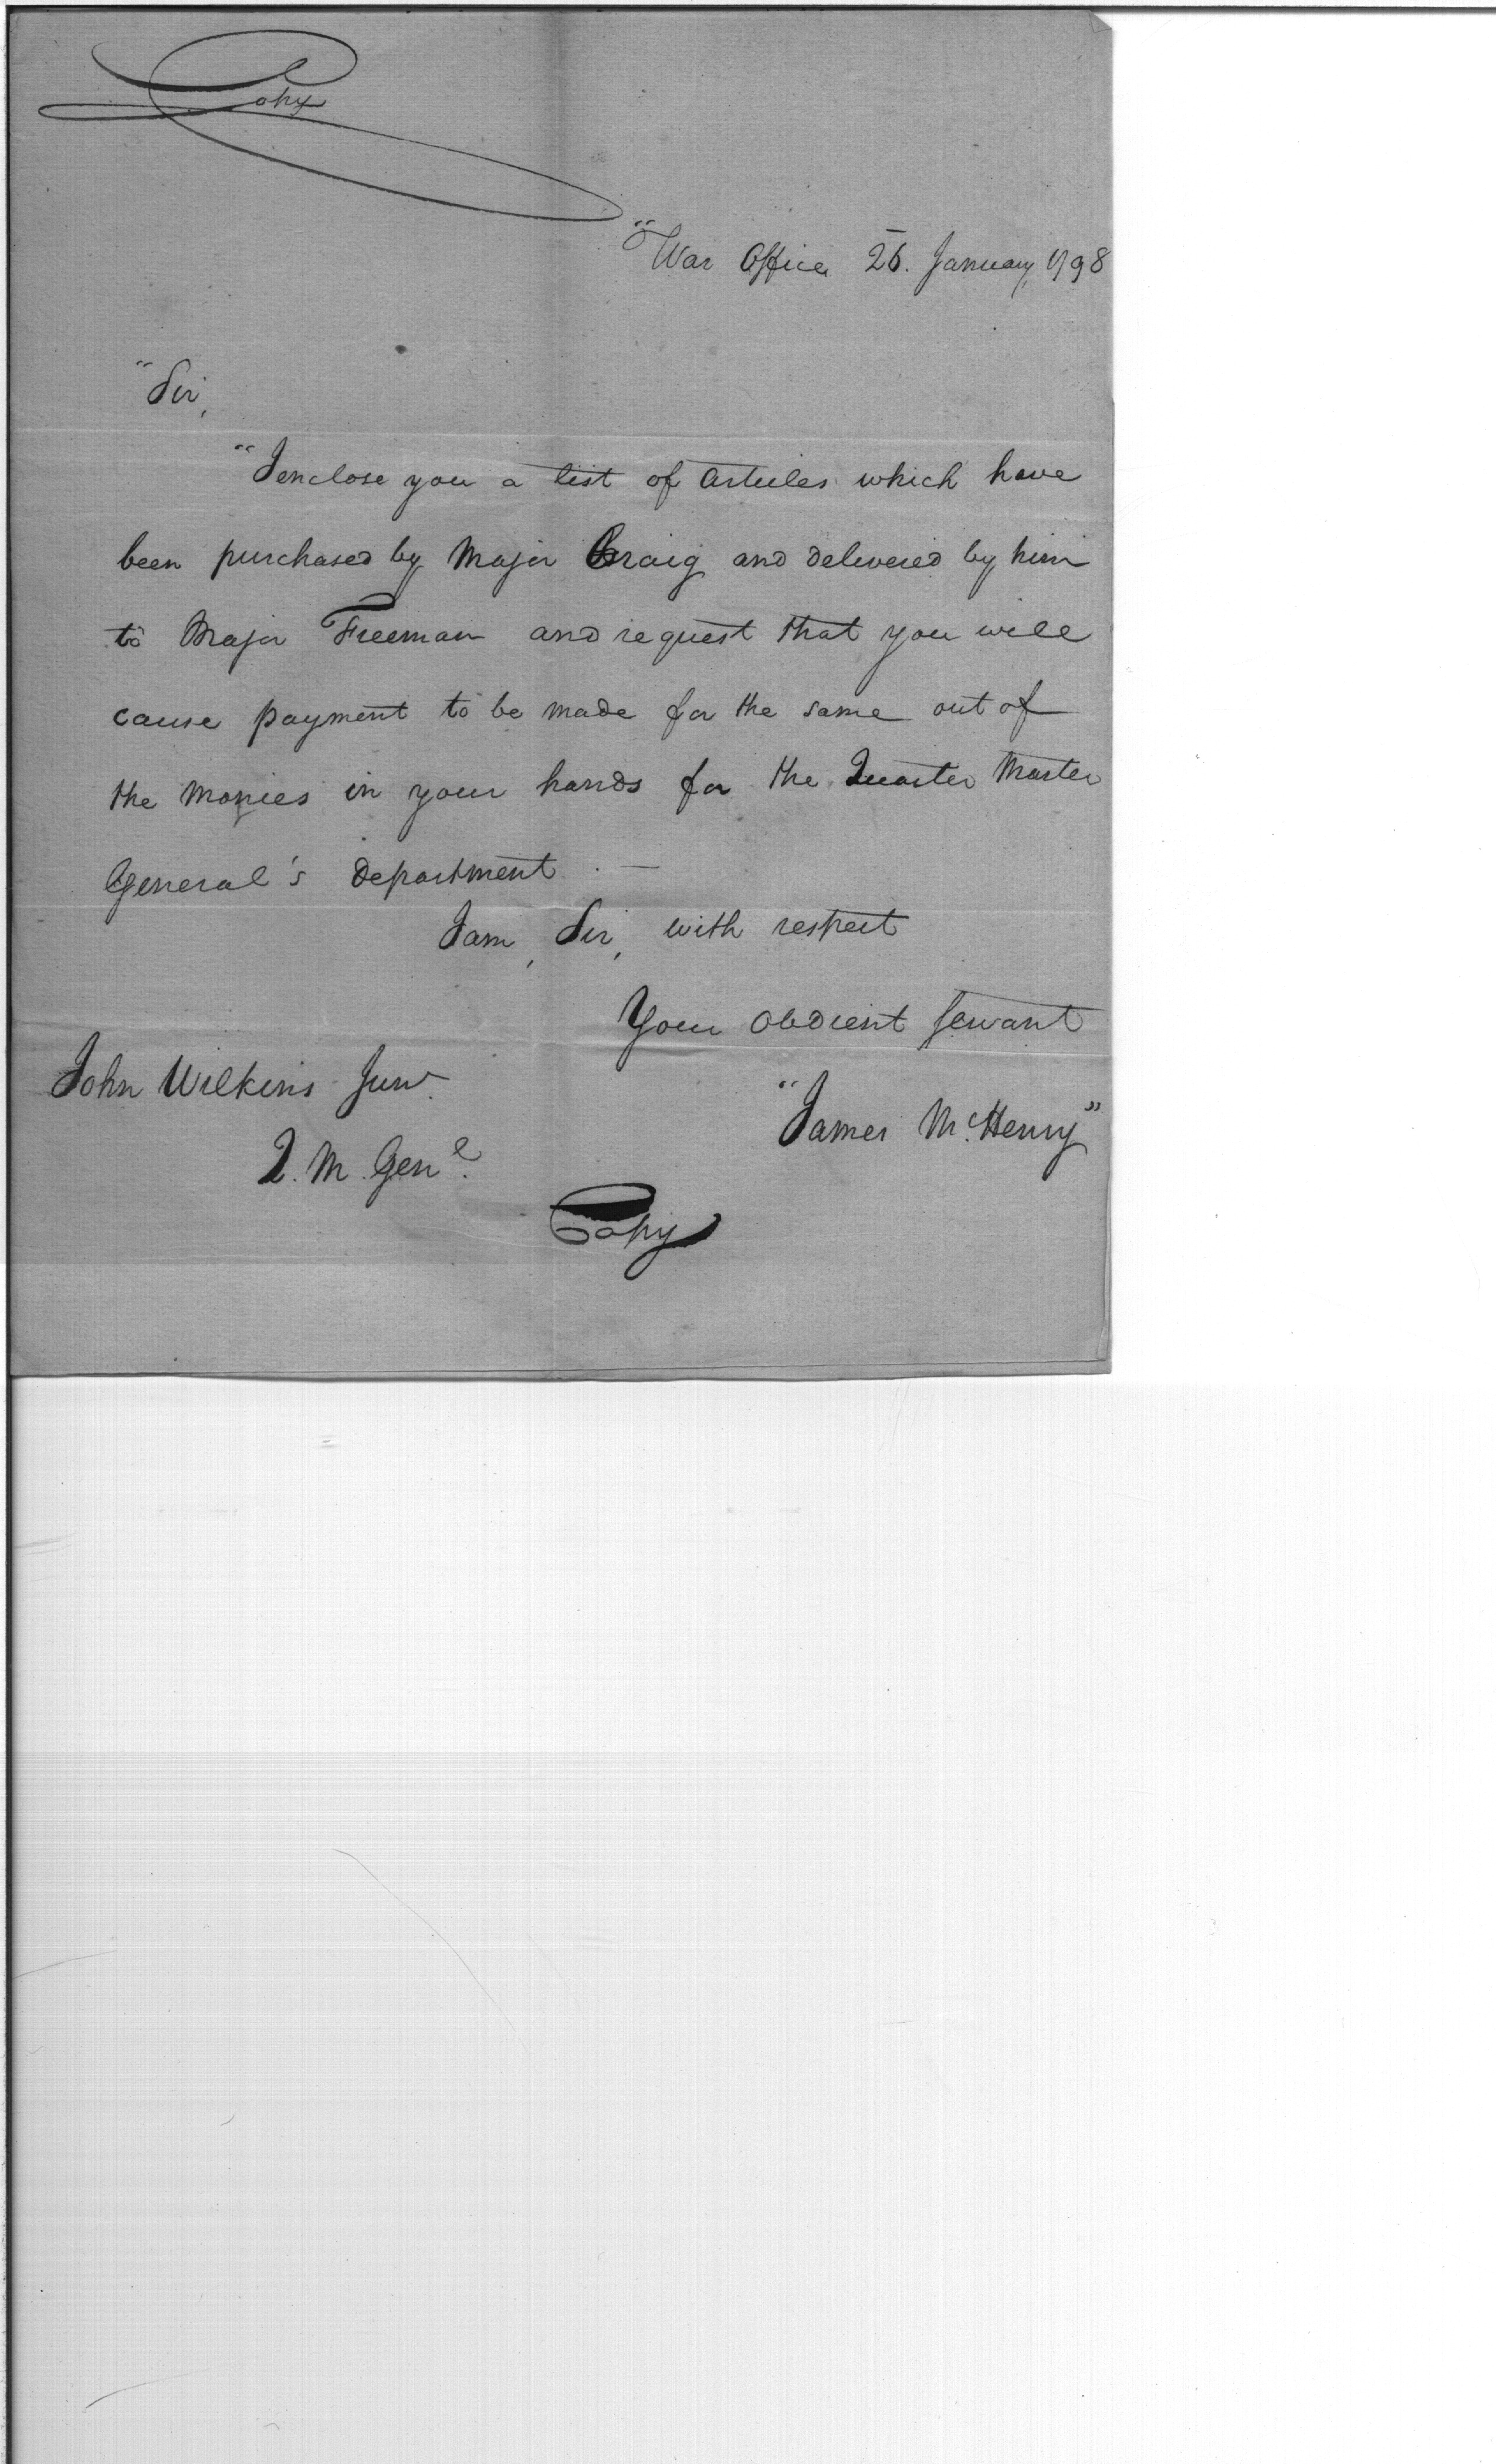 Copy
"War Office 26. January, 1798
"Sir,
"I enclose you a list of Articles which have
been purchased by Major Craig and delivered by him
to Major Freeman and request that you will
cause payment to be made for the same out of
the monies in your hands for the Quarter Master
General's department. —
I am, Sir, with respect
Your obdient servant
John Wilkins Junr.
"James McHenry"
Q. M. Genl.
Copy